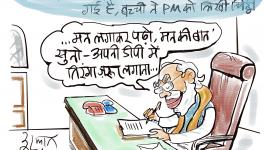 गई है, बच्ची ने PM को लिखी चिट्ठी
...मन लगाकर पढ़ो, मन की बात
सुनो - अपनी डीपी में
तिरंगा जरूर लगाना...
इरफान